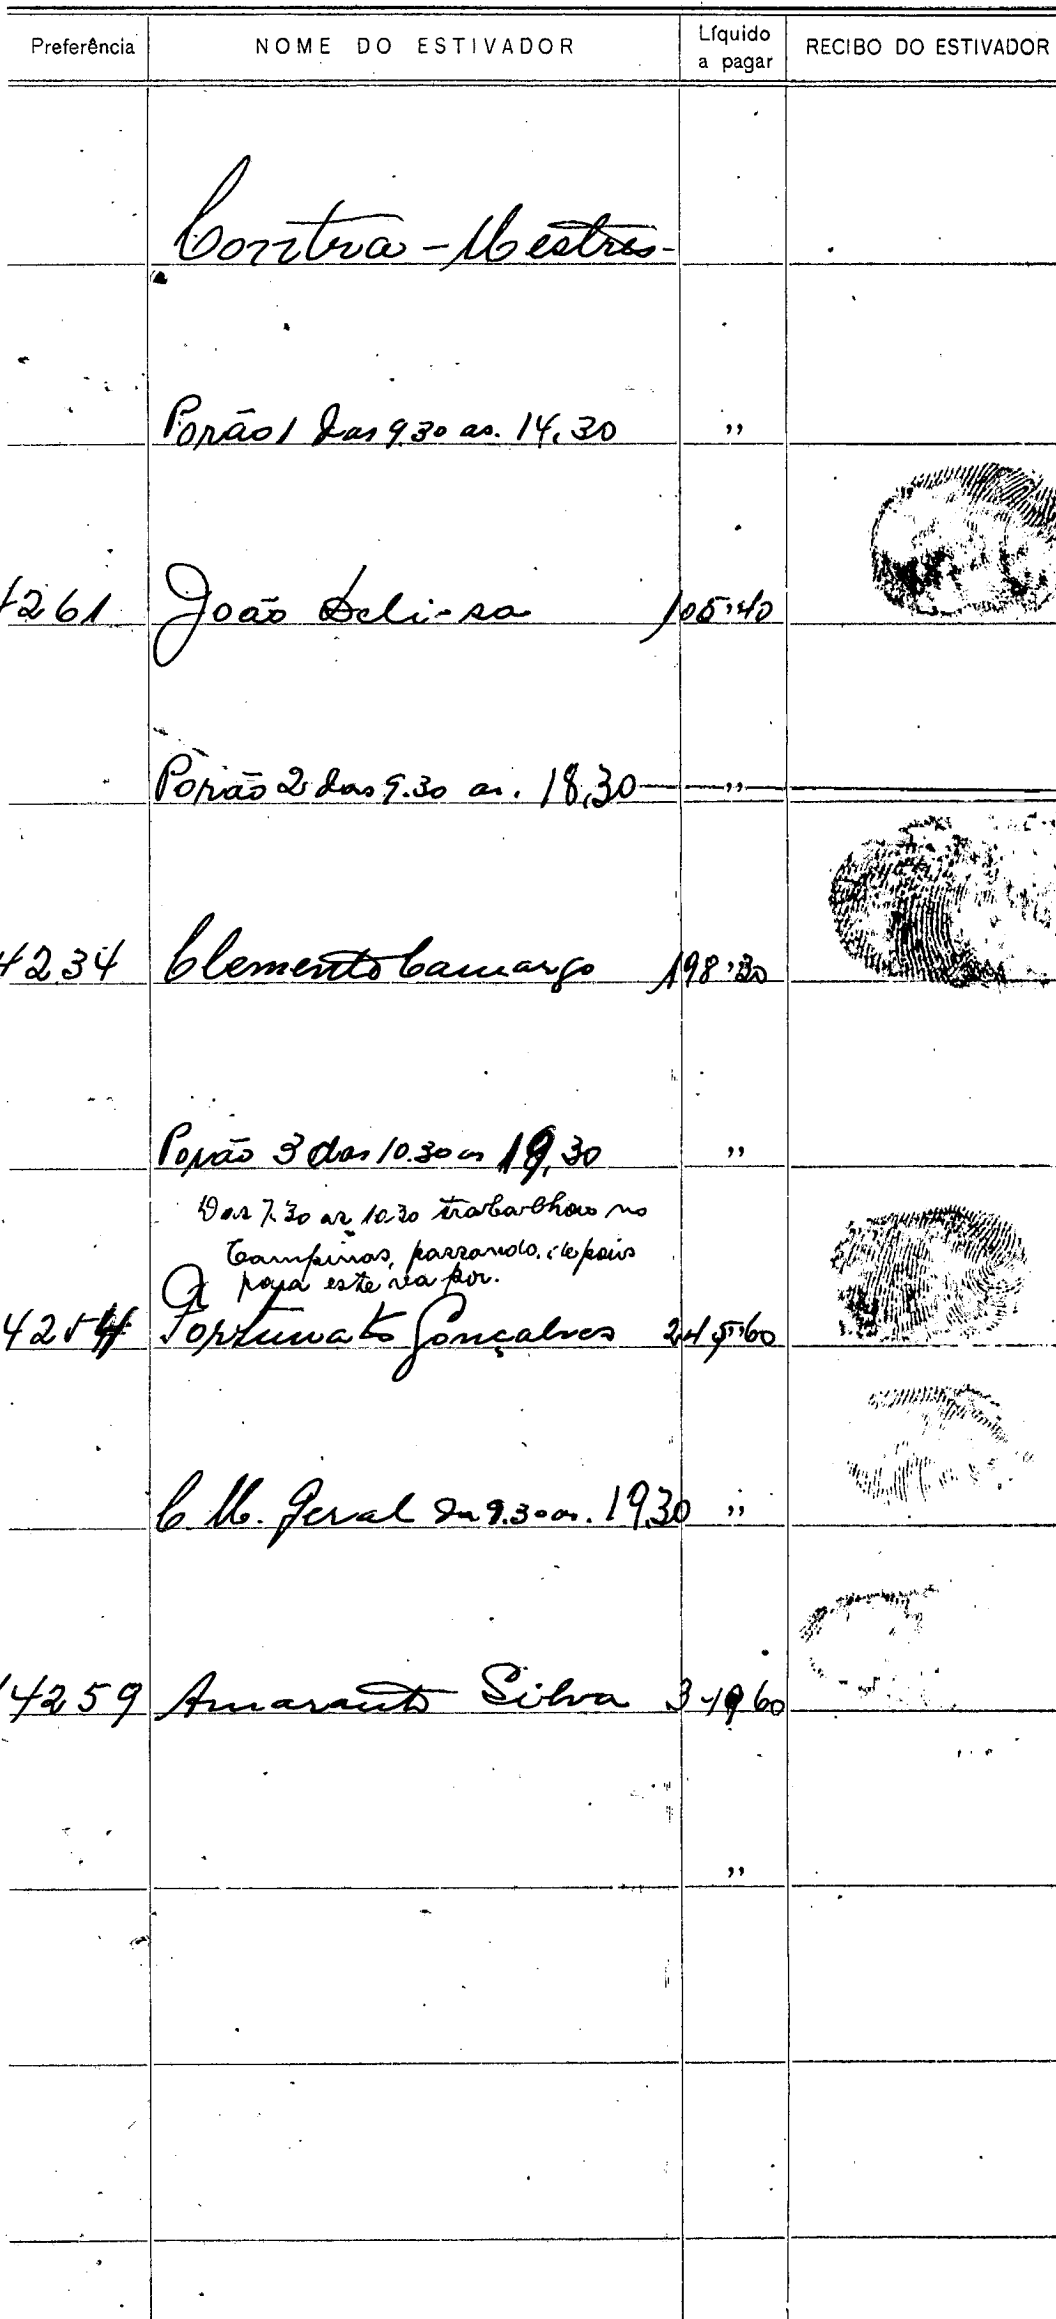 Preferência NOME DO ESTIVADOR Líquido a pagar RECIBO DO ESTIVADOR
Contra-Mestres-
Porão 1 das 9.30 as. 14,30 ,,
4261 João 105,,40
Porão 2 das 9.30 as. 18,30 ,,
4234 Clemente Camargo 198,,30
Porão 3 das 10.30 as 19,30 ,,
Das 7.30 as 10.30 trabalhou no
Campinas, passando, depois
para este vapor.
4254 Fortunato Gonçalves 245,,60
C. M. Geral das 9.30 as. 19,30 ,,
4259 Amaranto Silva
,,